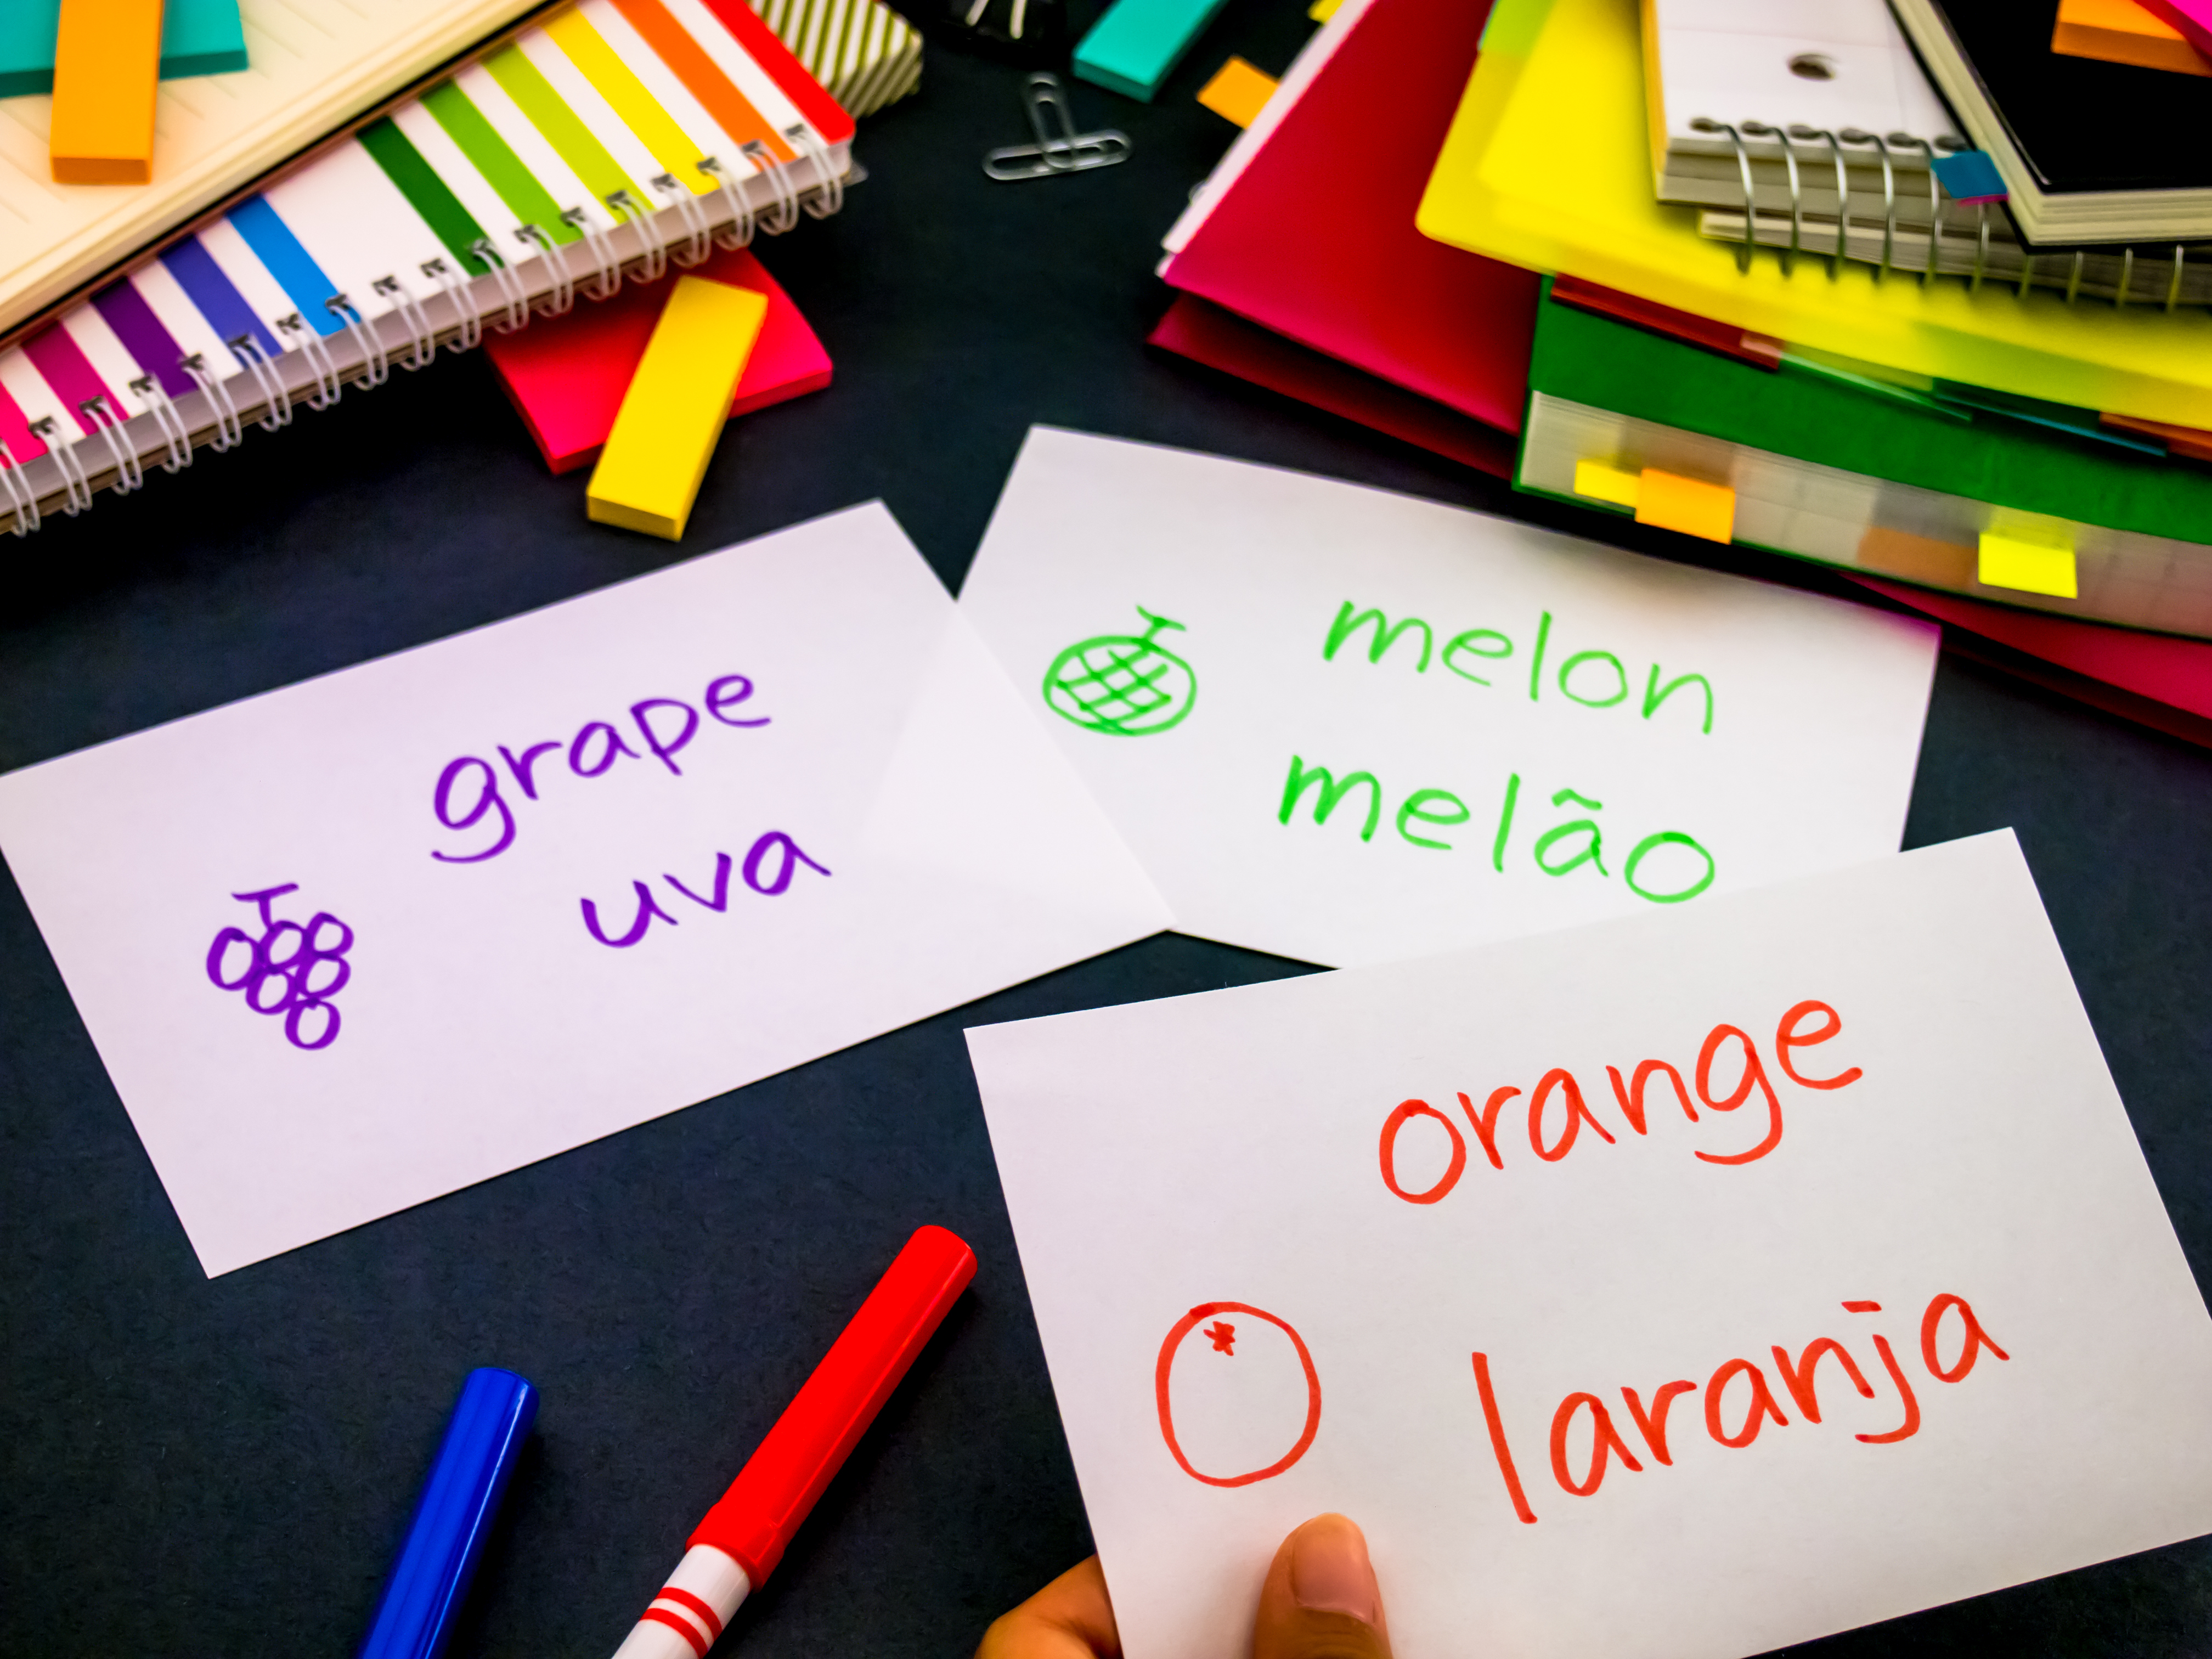 grape
uva
melon
melão
orange
laranja